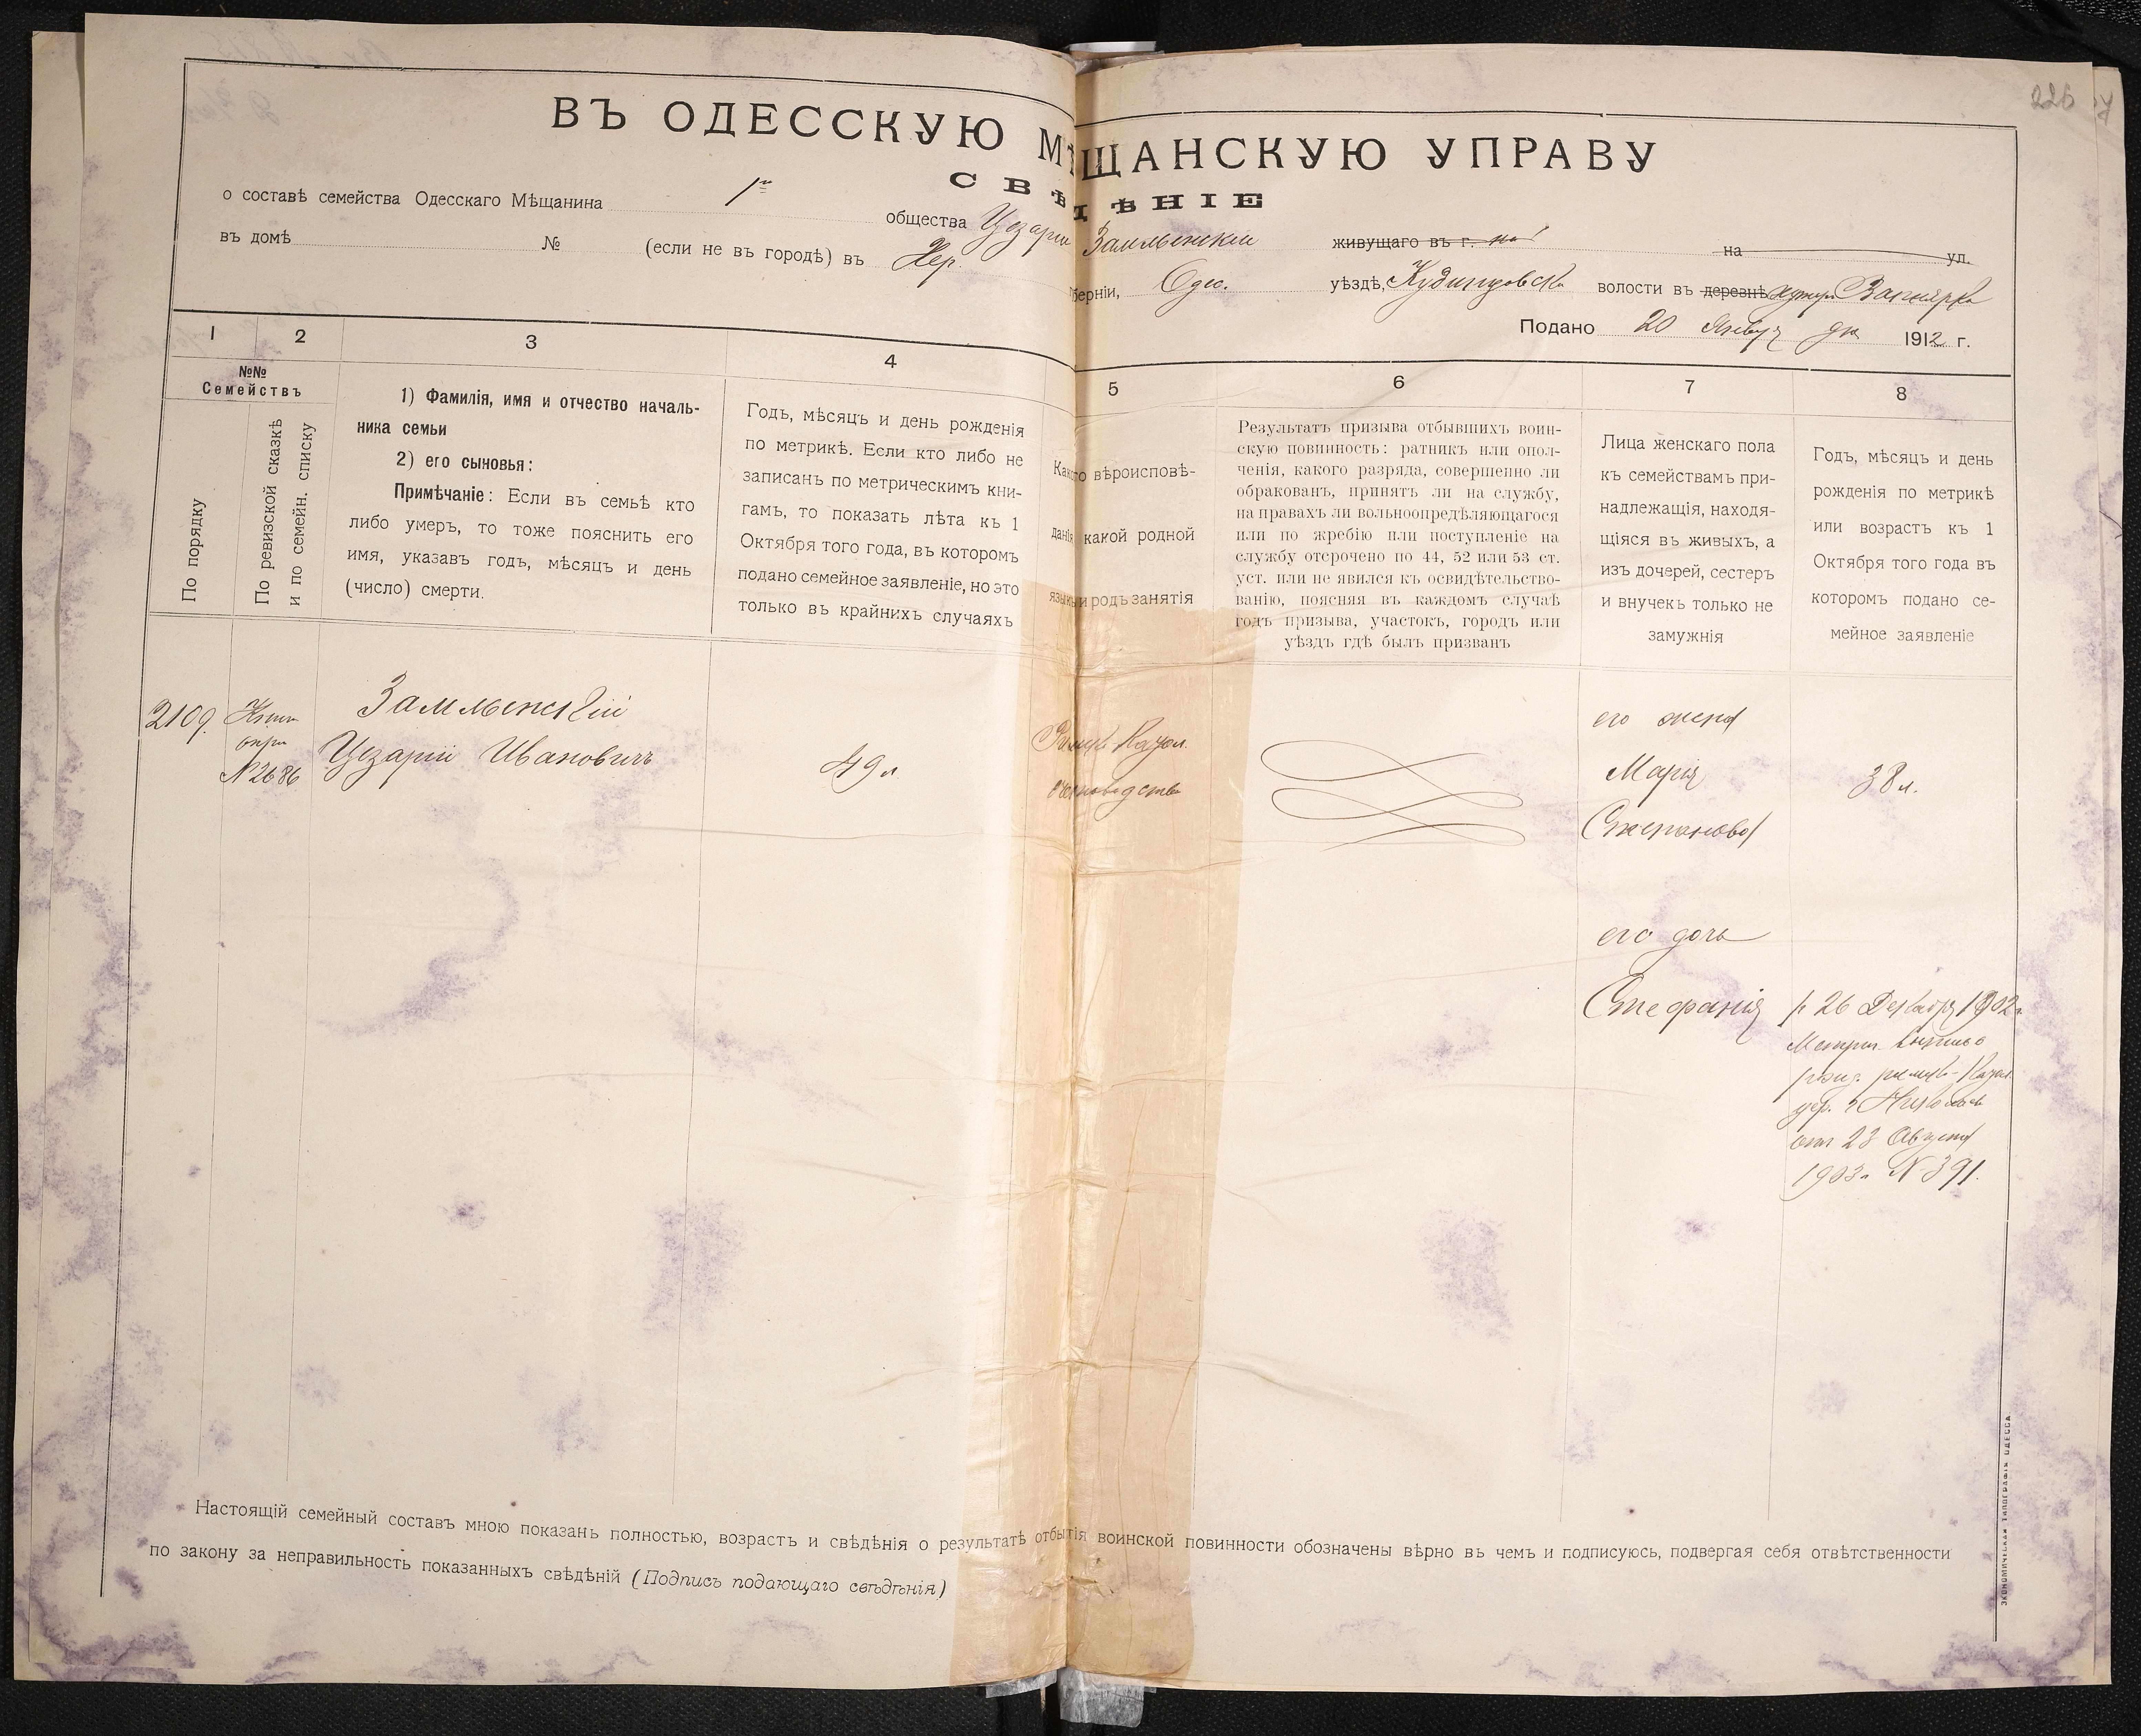 226
ВЪ ОДЕССКУЮ МѢЩАНСКУЮ УПРАВУ
СВѢДѢНІЕ
о составѣ семейства Одесскаго Мѣщанина 1го общества Цезарія Замленскій живущаго въ г. на ул.
въ домѣ № (если не въ городѣ) въ Хер. губерніи, Одес. уѣздѣ, волости въ деревнѣ
Подано 20 Января дня 1912 г.
1 2 3 4 5 6 7 8
№№
Семействъ
По порядку
По ревизской сказкѣ
и по семейн. списку
1) Фамилія, имя и отчество началь-
ника семьи
2) его сыновья:
Примѣчаніе: Если въ семьѣ кто
либо умеръ, то тоже пояснить его
имя, указавъ годъ, мѣсяцъ и день
(число) смерти.
Годъ, мѣсяцъ и день рожденія
по метрикѣ. Если кто либо не
записанъ по метрическимъ кни-
гамъ, то показать лѣта къ 1
Октября того года, въ которомъ
подано семейное заявленіе, но это
только въ крайнихъ случаяхъ
Какого вѣроисповѣ-
данія какой родной
языкъ и родъ занятія
Результатъ призыва отбывшихъ воин-
скую повинность: ратникъ или опол-
ченія, какого разряда, совершенно ли
обракованъ, принятъ ли на службу,
на правахъ ли вольноопредѣляющагося
или по жребію или поступленіе на
службу отсрочено по 44, 52 или 53 ст.
уст. или не явился къ освидѣтельство-
ванію, поясняя въ каждомъ случаѣ
годъ призыва, участокъ, городъ или
уѣздъ гдѣ былъ призванъ
Лица женскаго пола
къ семействамъ при-
надлежащія, находя-
щіяся въ живыхъ, а
изъ дочерей, сестеръ
и внучекъ только не
замужнія
Годъ, мѣсяцъ и день
рожденія по метрикѣ
или возрастъ къ 1
Октября того года въ
которомъ подано се-
мейное заявленіе
2109.
№ 2686
Замленскій
Цезарій Ивановичъ
49 л.
Римск Катол.
его жена
Марія
Степанова
38 л.
его дочь
Стефанія
р. 26 Декабря 1902 г.
Метрич.
римск-Катол.
отъ 23 Августа
1903 г. № 391.
Настоящій семейный составъ мною показанъ полностью, возрастъ и свѣдѣнія о результатѣ отбытія воинской повинности обозначены вѣрно въ чемъ и подписуюсь, подвергая себя отвѣтственности
по закону за неправильность показанныхъ свѣдѣній (Подпись подающаго свѣдѣнія)
ЭКОНОМИЧЕСКАЯ ТИПОГРАФІЯ ОДЕССА